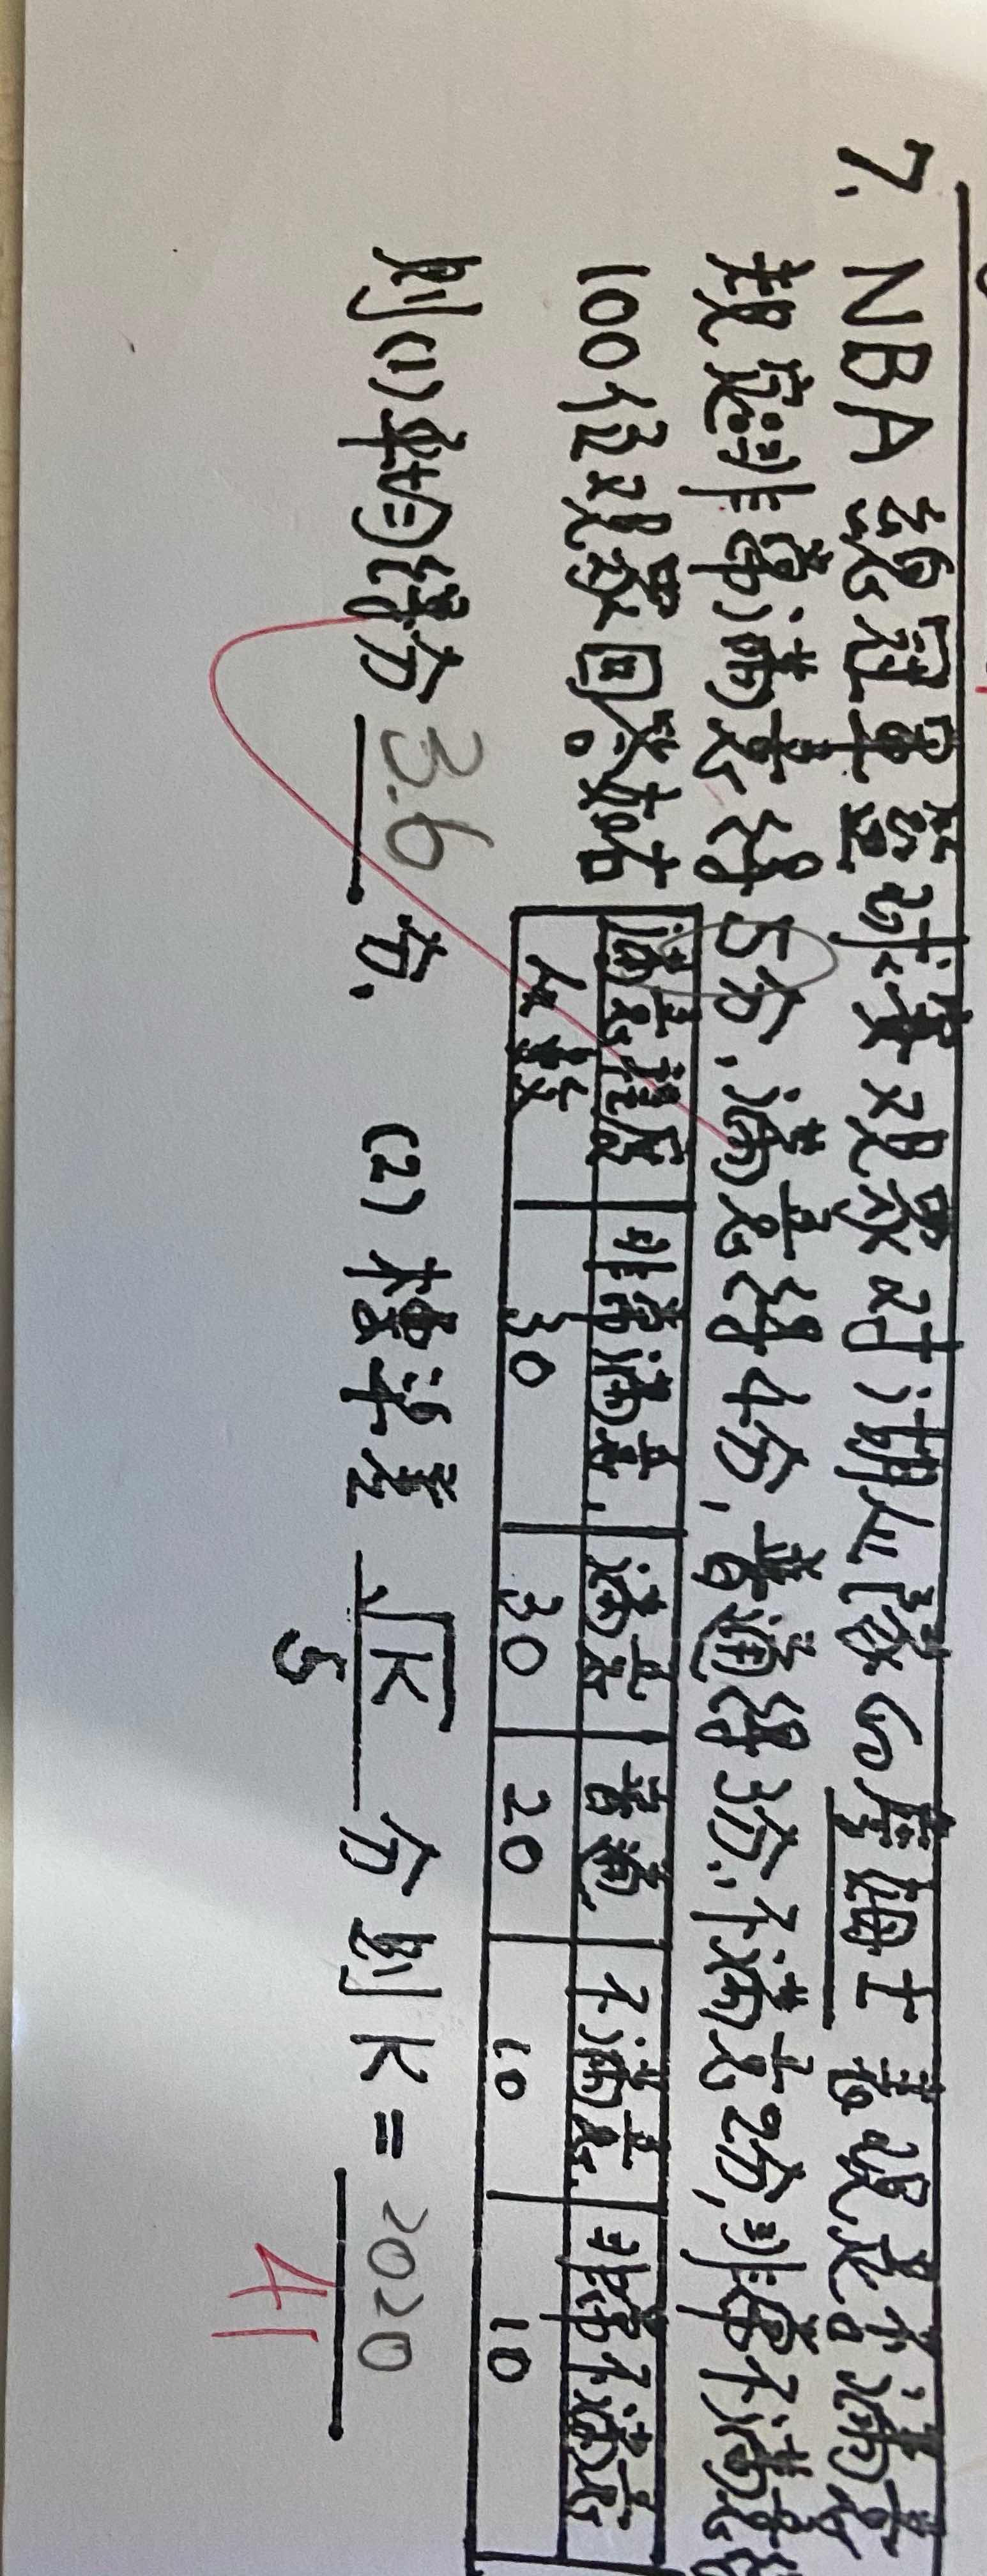 7. NBA 總冠軍籃球賽觀眾對湖人隊的詹姆士表現是否滿意
規定:非常滿意得5分,滿意得4分,普通得3分,不滿意2分,非常不滿意
100位觀眾回答如右
滿意程度 非常滿意 滿意 普通 不滿意 非常不滿意
人數 30 30 20 10 10
則(1)平均得分 3.6 分. (2)標準差 √K/5 分則K= 2020
41